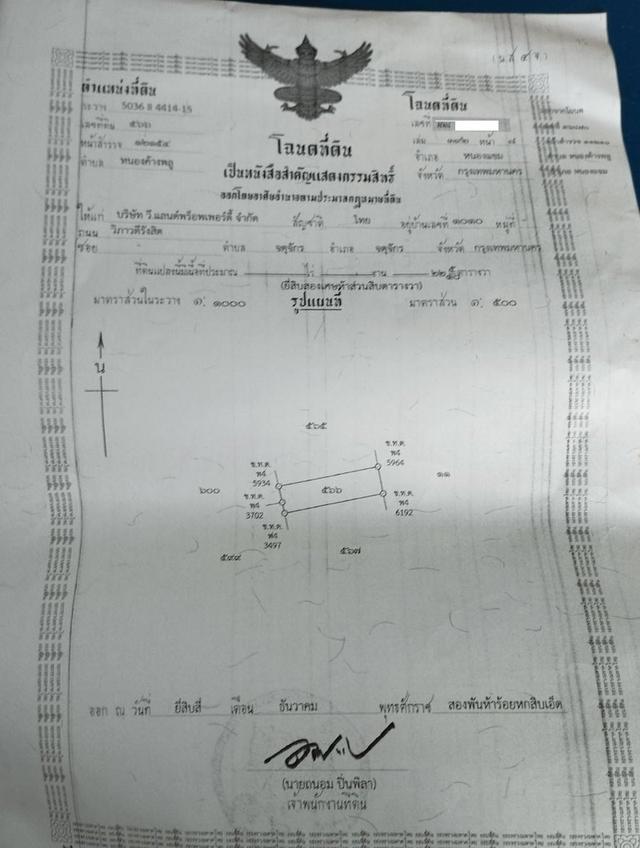 (น.ส. ๔ จ.)
ตำแหน่งที่ดิน
ระวาง 5036 II 4414-15
เลขที่ดิน ๕๖๖
หน้าสำรวจ
ตำบล หนองค้างพลู
โฉนดที่ดิน
เลขที่
เล่ม หน้า
อำเภอ หนองแขม
จังหวัด กรุงเทพมหานคร
โฉนดที่ดิน
เป็นหนังสือสำคัญแสดงกรรมสิทธิ์
ออกโดยอาศัยอำนาจตามประมวลกฎหมายที่ดิน
ให้แก่ บริษัท วี.แลนด์พร็อพเพอร์ตี้ จำกัด สัญชาติ ไทย อยู่บ้านเลขที่ ๑๐๑๐ หมู่ที่
ถนน วิภาวดีรังสิต
ซอย ตำบล จตุจักร อำเภอ จตุจักร จังหวัด กรุงเทพมหานคร
ที่ดินแปลงนี้มีเนื้อที่ประมาณ - ไร่ - งาน ตารางวา
(ยี่สิบสองเศษห้าส่วนสิบตารางวา)
มาตราส่วนในระวาง ๑: ๑๐๐๐ รูปแผนที่ มาตราส่วน ๑: ๕๐๐
น
๕๖๕
ข.ท.ต.
พ4
5964
ข.ท.ต.
พ4
5934
๖๐๐
๕๖๖
๑๑
ข.ท.ต.
พ4
3702
ข.ท.ต.
พ4
6192
ข.ท.ต.
พ4
3497
๕๙๙
๕๖๗
ออก ณ วันที่ ยี่สิบสี่ เดือน ธันวาคม พุทธศักราช สองพันห้าร้อยหกสิบเอ็ด
(นายถนอม ปิ่นพิลา)
เจ้าพนักงานที่ดิน